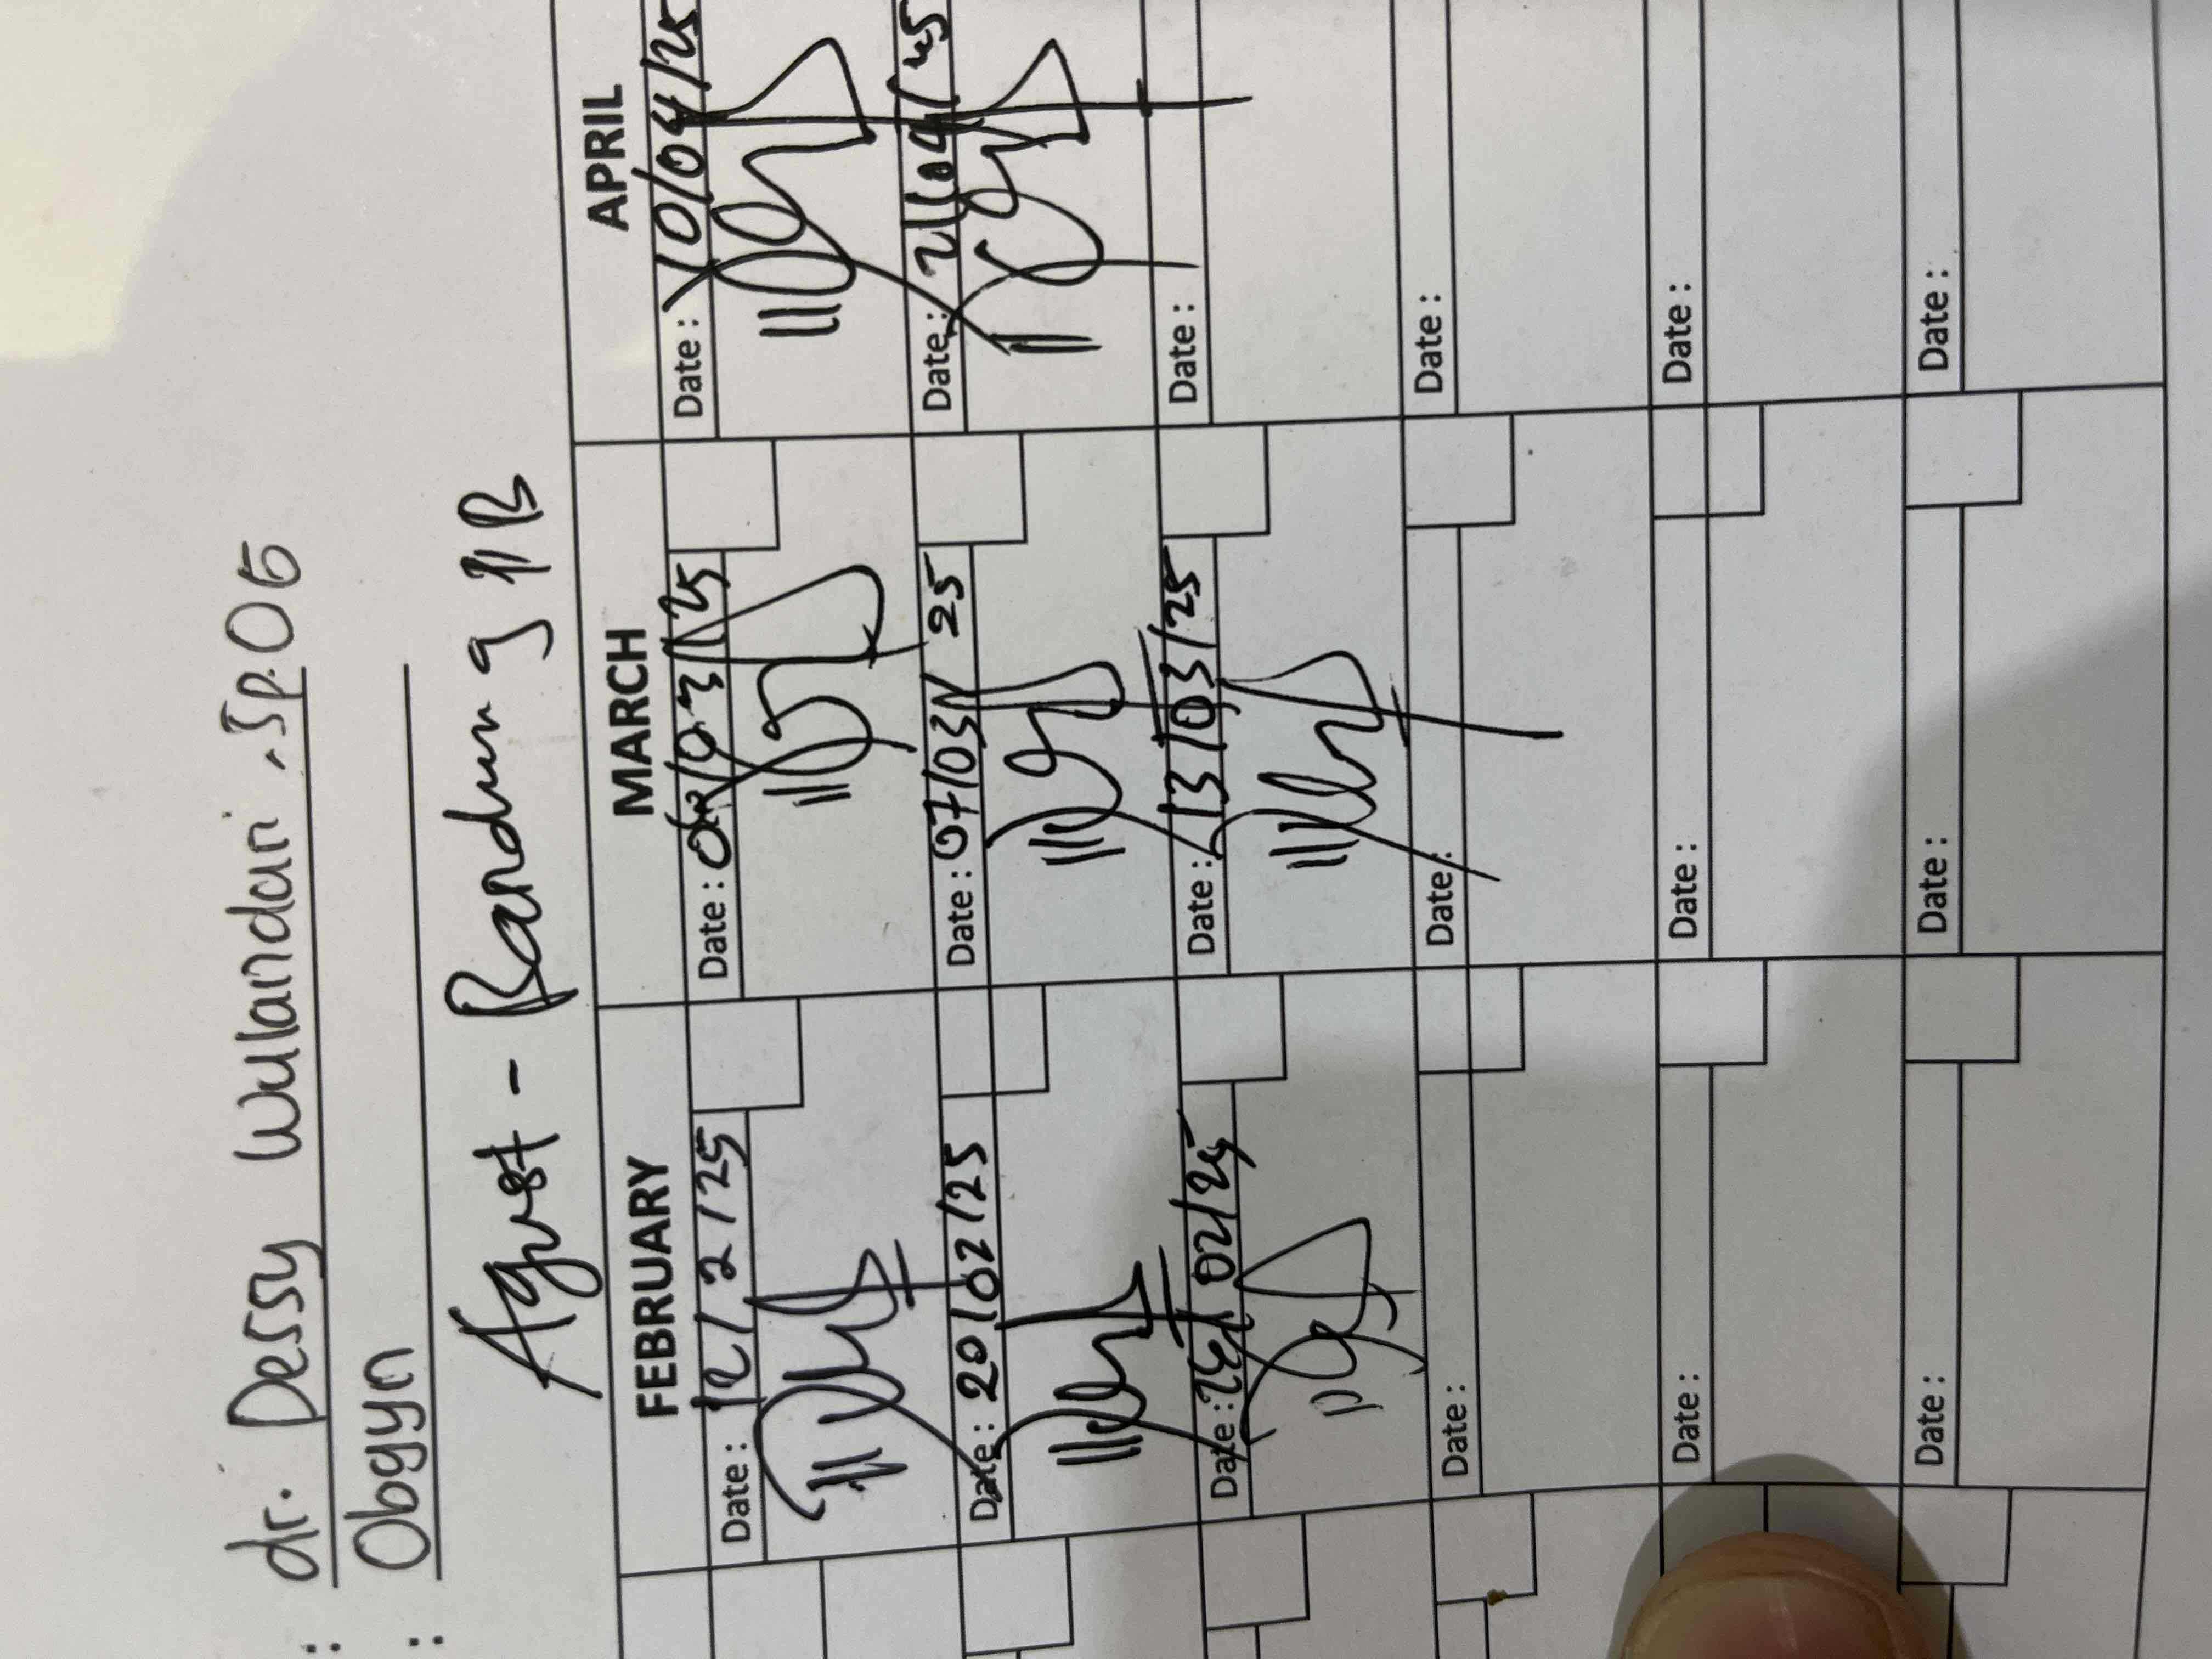 : dr. Dessy Wulandari, Sp.OG
: Obgyn
Agust - Bandung
FEBRUARY MARCH APRIL
Date : 12/2/25 Date : 03/03/25 Date : 10/04/25
Date : 20/02/25 Date : 07/03/25 Date : 21/04/25
Date : 02/25 Date : 13/03/25 Date :
Date : Date : Date :
Date : Date : Date :
Date : Date : Date :